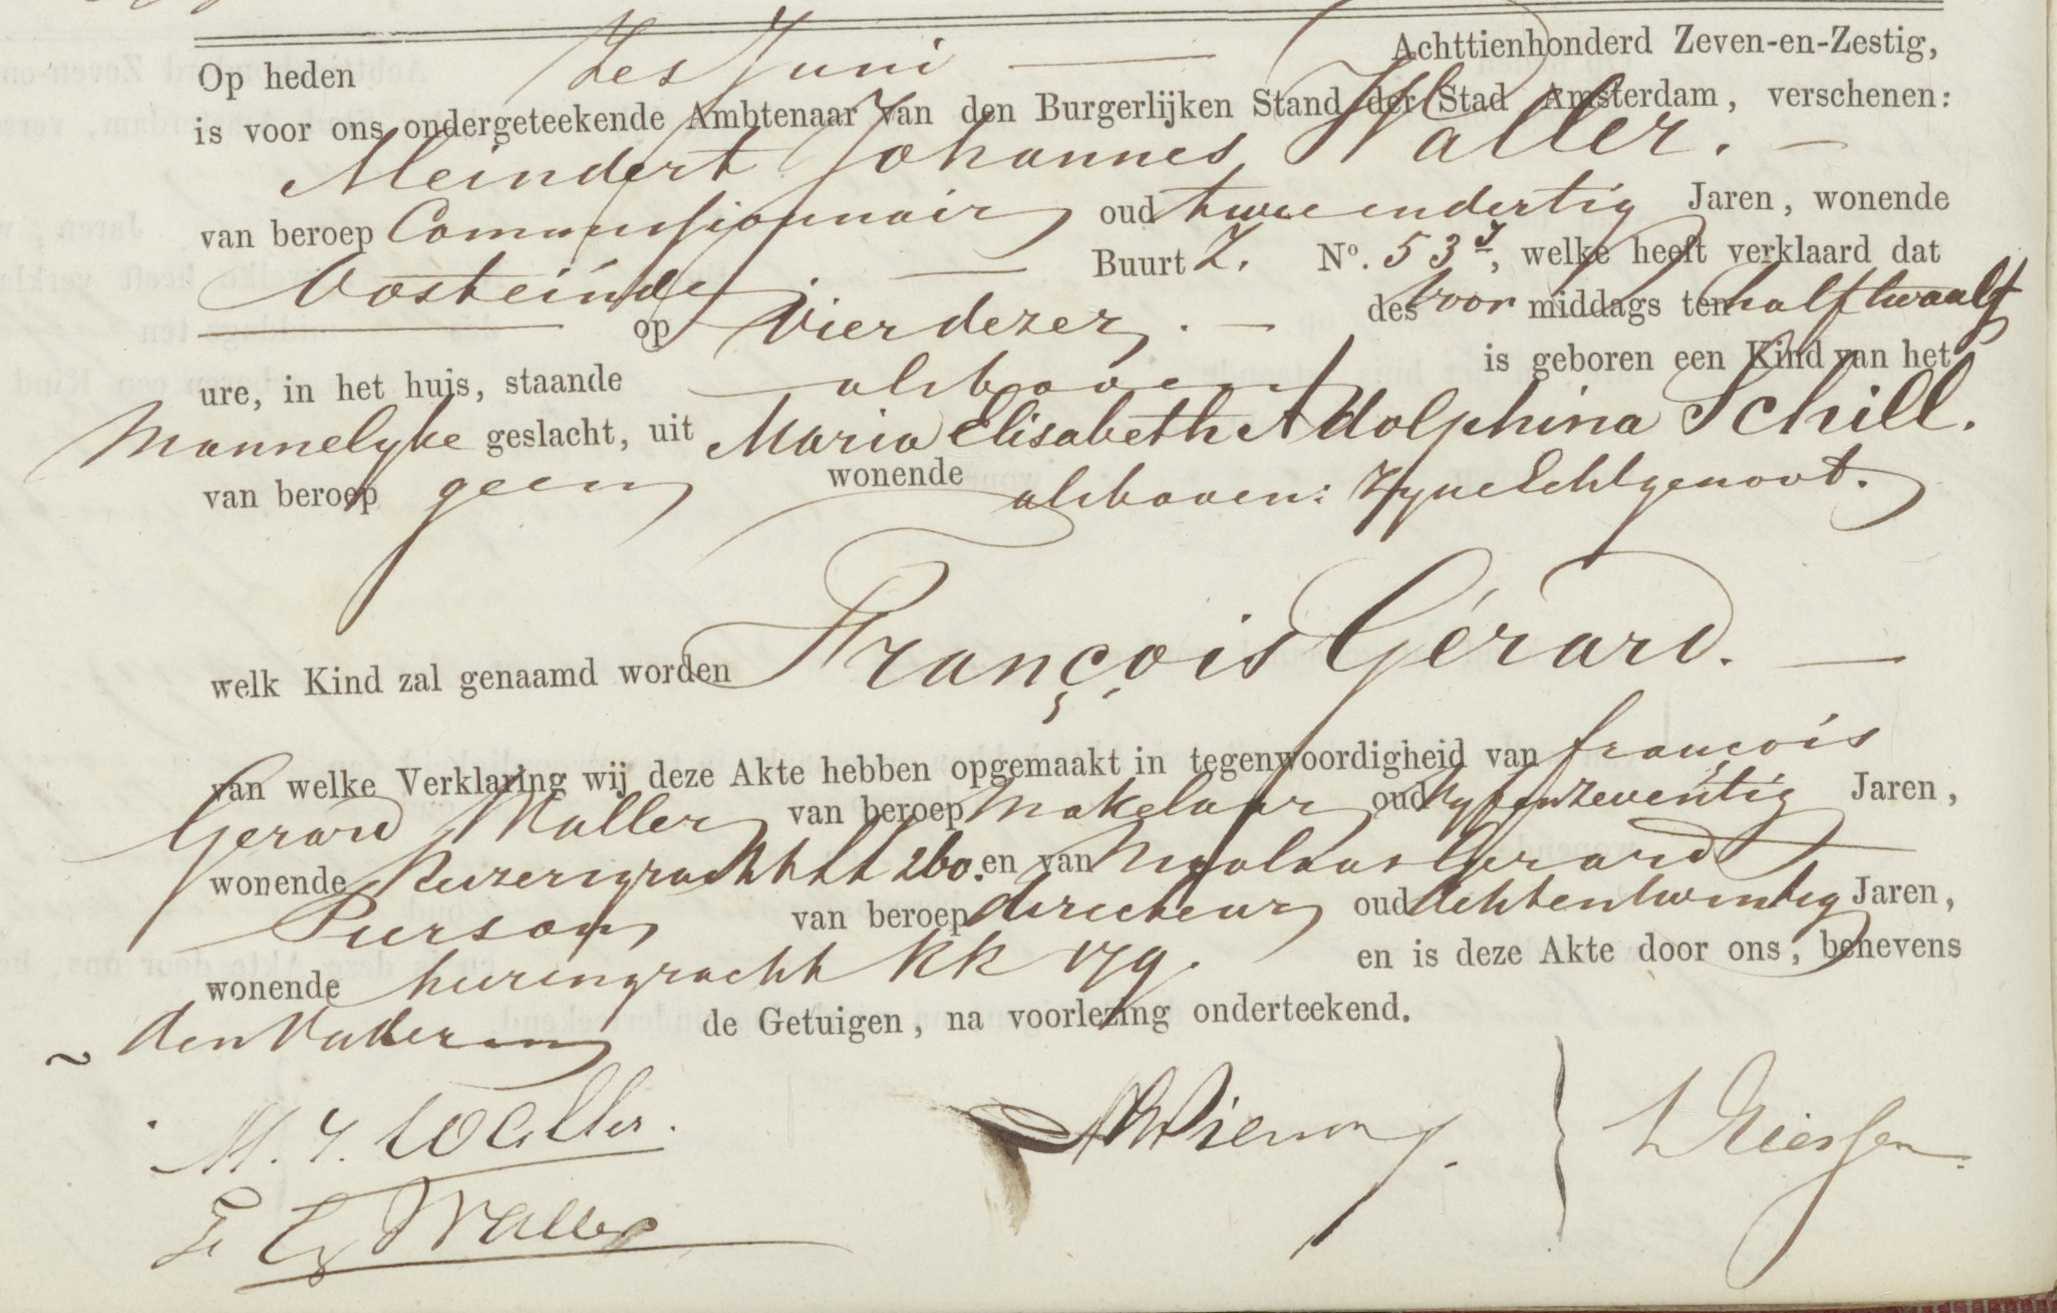 Op heden Zes Juni Achttienhonderd Zeven-en-Zestig,
is voor ons ondergeteekende Ambtenaar van den Burgerlijken Stand der Stad Amsterdam, verschenen:
Meindert Johannes Waller.
van beroep Commissionnair oud twee en dertig Jaren, wonende
Oosteinde Buurt Z. No. 53, welke heeft verklaard dat
op Vier dezer. des voor middags ten half twaalf
ure, in het huis, staande als boven is geboren een Kind van het
Mannelyke geslacht, uit Maria Elisabeth Adolphina Schill.
van beroep geen wonende als boven: Zyne Echtgenoot.
welk Kind zal genaamd worden François Gérard.
van welke Verklaring wij deze Akte hebben opgemaakt in tegenwoordigheid van françois
Gerard Waller van beroep Makelaar oud vyfenzeventig Jaren,
wonende Keizersgracht HH 260. en van Nicolaas Gerard
Pierson van beroep directeur oud Achtentwintig Jaren,
wonende heerengracht KK 179. en is deze Akte door ons, benevens
den Vader en de Getuigen, na voorlezing onderteekend.
M. J. Waller.
F. G. Waller
N G Pierson